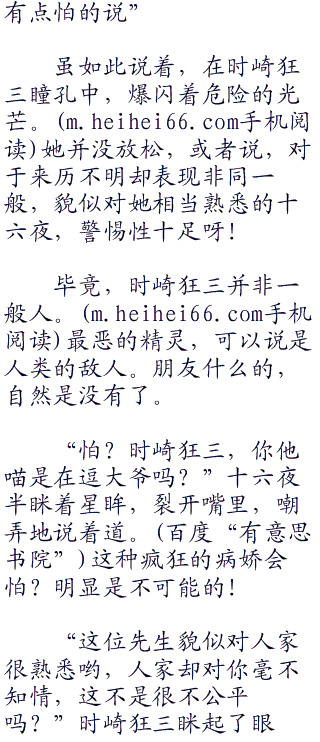 有点怕的说”
虽如此说着，在时崎狂
三瞳孔中，爆闪着危险的光
芒。(m.heihei66.com手机阅
读)她并没放松，或者说，对
于来历不明却表现非同一
般，貌似对她相当熟悉的十
六夜，警惕性十足呀！
毕竟，时崎狂三并非一
般人。(m.heihei66.com手机
阅读)最恶的精灵，可以说是
人类的敌人。朋友什么的，
自然是没有了。
“怕？时崎狂三，你他
喵是在逗大爷吗？”十六夜
半眯着星眸，裂开嘴里，嘲
弄地说着道。(百度“有意思
书院”)这种疯狂的病娇会
怕？明显是不可能的！
“这位先生貌似对人家
很熟悉哟，人家却对你毫不
知情，这不是很不公平
吗？”时崎狂三眯起了眼